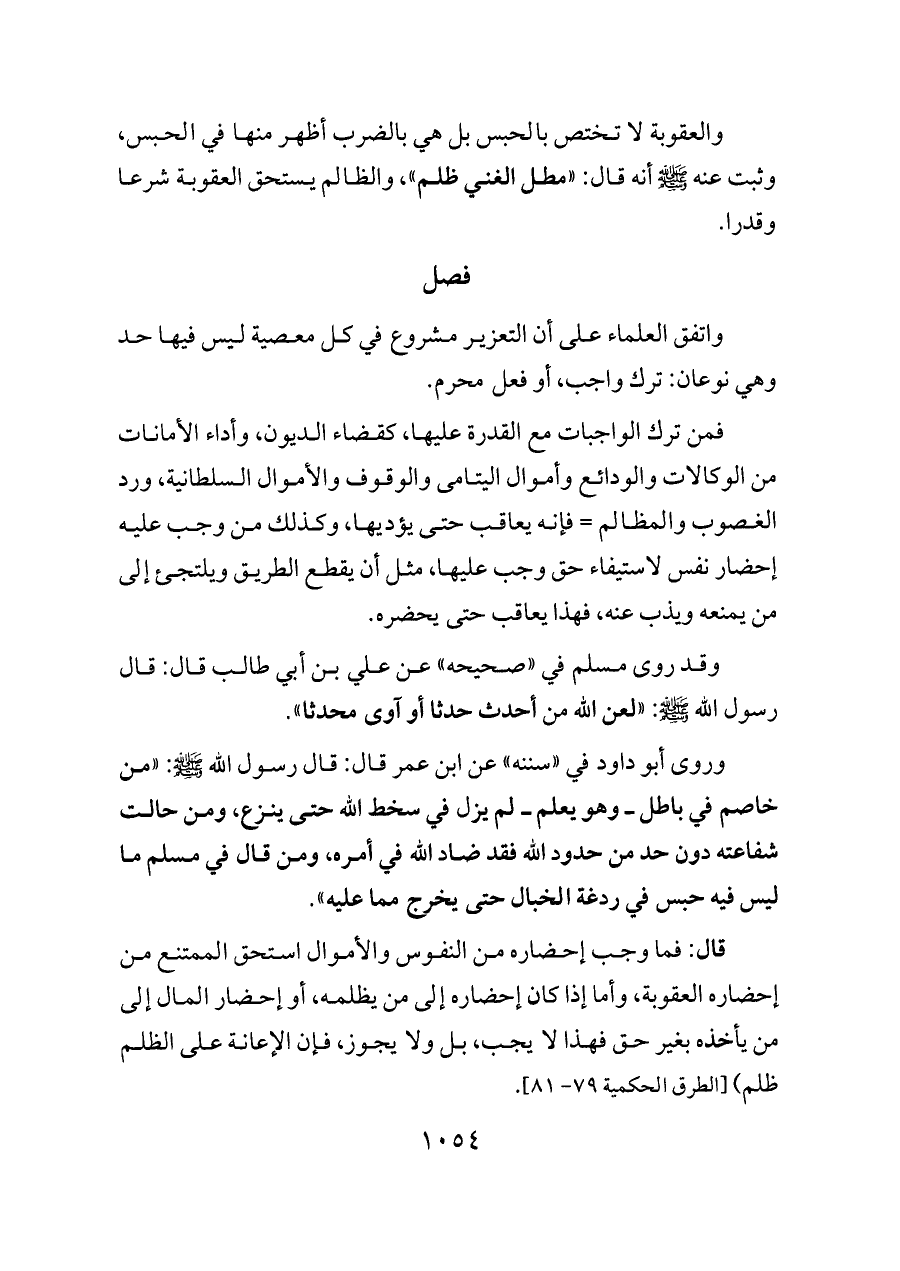 والعقوبة لا تختص بالحبس بل هي بالضرب أظهر منها في الحبس،
وثبت عنه ﷺ أنه قال: «مطل الغني ظلم»، والظالم يستحق العقوبة شرعا
وقدرا.
فصل
واتفق العلماء على أن التعزير مشروع في كل معصية ليس فيها حد
وهي نوعان: ترك واجب، أو فعل محرم.
فمن ترك الواجبات مع القدرة عليها، كقضاء الديون، وأداء الأمانات
من الوكالات والودائع وأموال اليتامى والوقوف والأموال السلطانية، ورد
الغصوب والمظالم = فإنه يعاقب حتى يؤديها، وكذلك من وجب عليه
إحضار نفس لاستيفاء حق وجب عليها، مثل أن يقطع الطريق ويلتجئ إلى
من يمنعه ويذب عنه، فهذا يعاقب حتى يحضره.
وقد روى مسلم في «صحيحه» عن علي بن أبي طالب قال: قال
رسول الله ﷺ: «لعن الله من أحدث حدثا أو آوى محدثا».
وروى أبو داود في «سننه» عن ابن عمر قال: قال رسول الله ﷺ: «من
خاصم في باطل ـ وهو يعلم ـ لم يزل في سخط الله حتى ينزع، ومن حالت
شفاعته دون حد من حدود الله فقد ضاد الله في أمره، ومن قال في مسلم ما
ليس فيه حبس في ردغة الخبال حتى يخرج مما عليه».
قال: فما وجب إحضاره من النفوس والأموال استحق الممتنع من
إحضاره العقوبة، وأما إذا كان إحضاره إلى من يظلمه، أو إحضار المال إلى
من يأخذه بغير حق فهذا لا يجب، بل ولا يجوز، فإن الإعانة على الظلم
ظلم) [الطرق الحكمية ٧٩- ٨١].
١٠٥٤